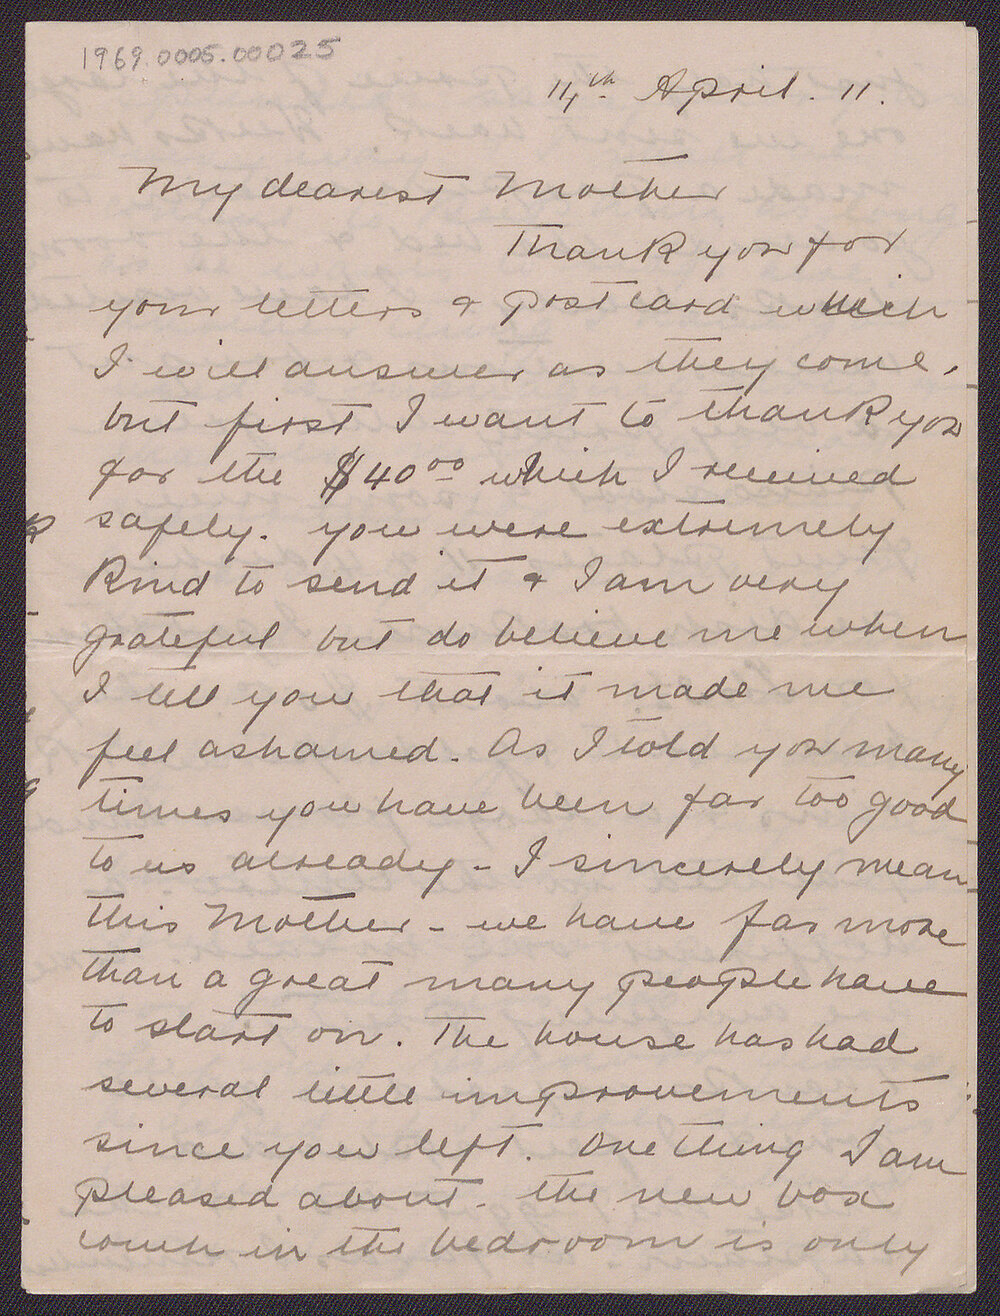 1969.0005.00025
14th April. 11.
My dearest Mother
Thank you for
your letters & postcard which
I will answer as they come,
but first I want to thank you
for the $40.00 which I received
safely. You were extremely
kind to send it & I am very
grateful but do believe me when
I tell you that it made me
feel ashamed. As I told you many
times you have been far too good
to us already - I sincerely mean
this Mother - we have far more
than a great many people have
to start on. The house has had
several little improvements
since you left. One thing I am
pleased about - the new box
couch in the bedroom is only